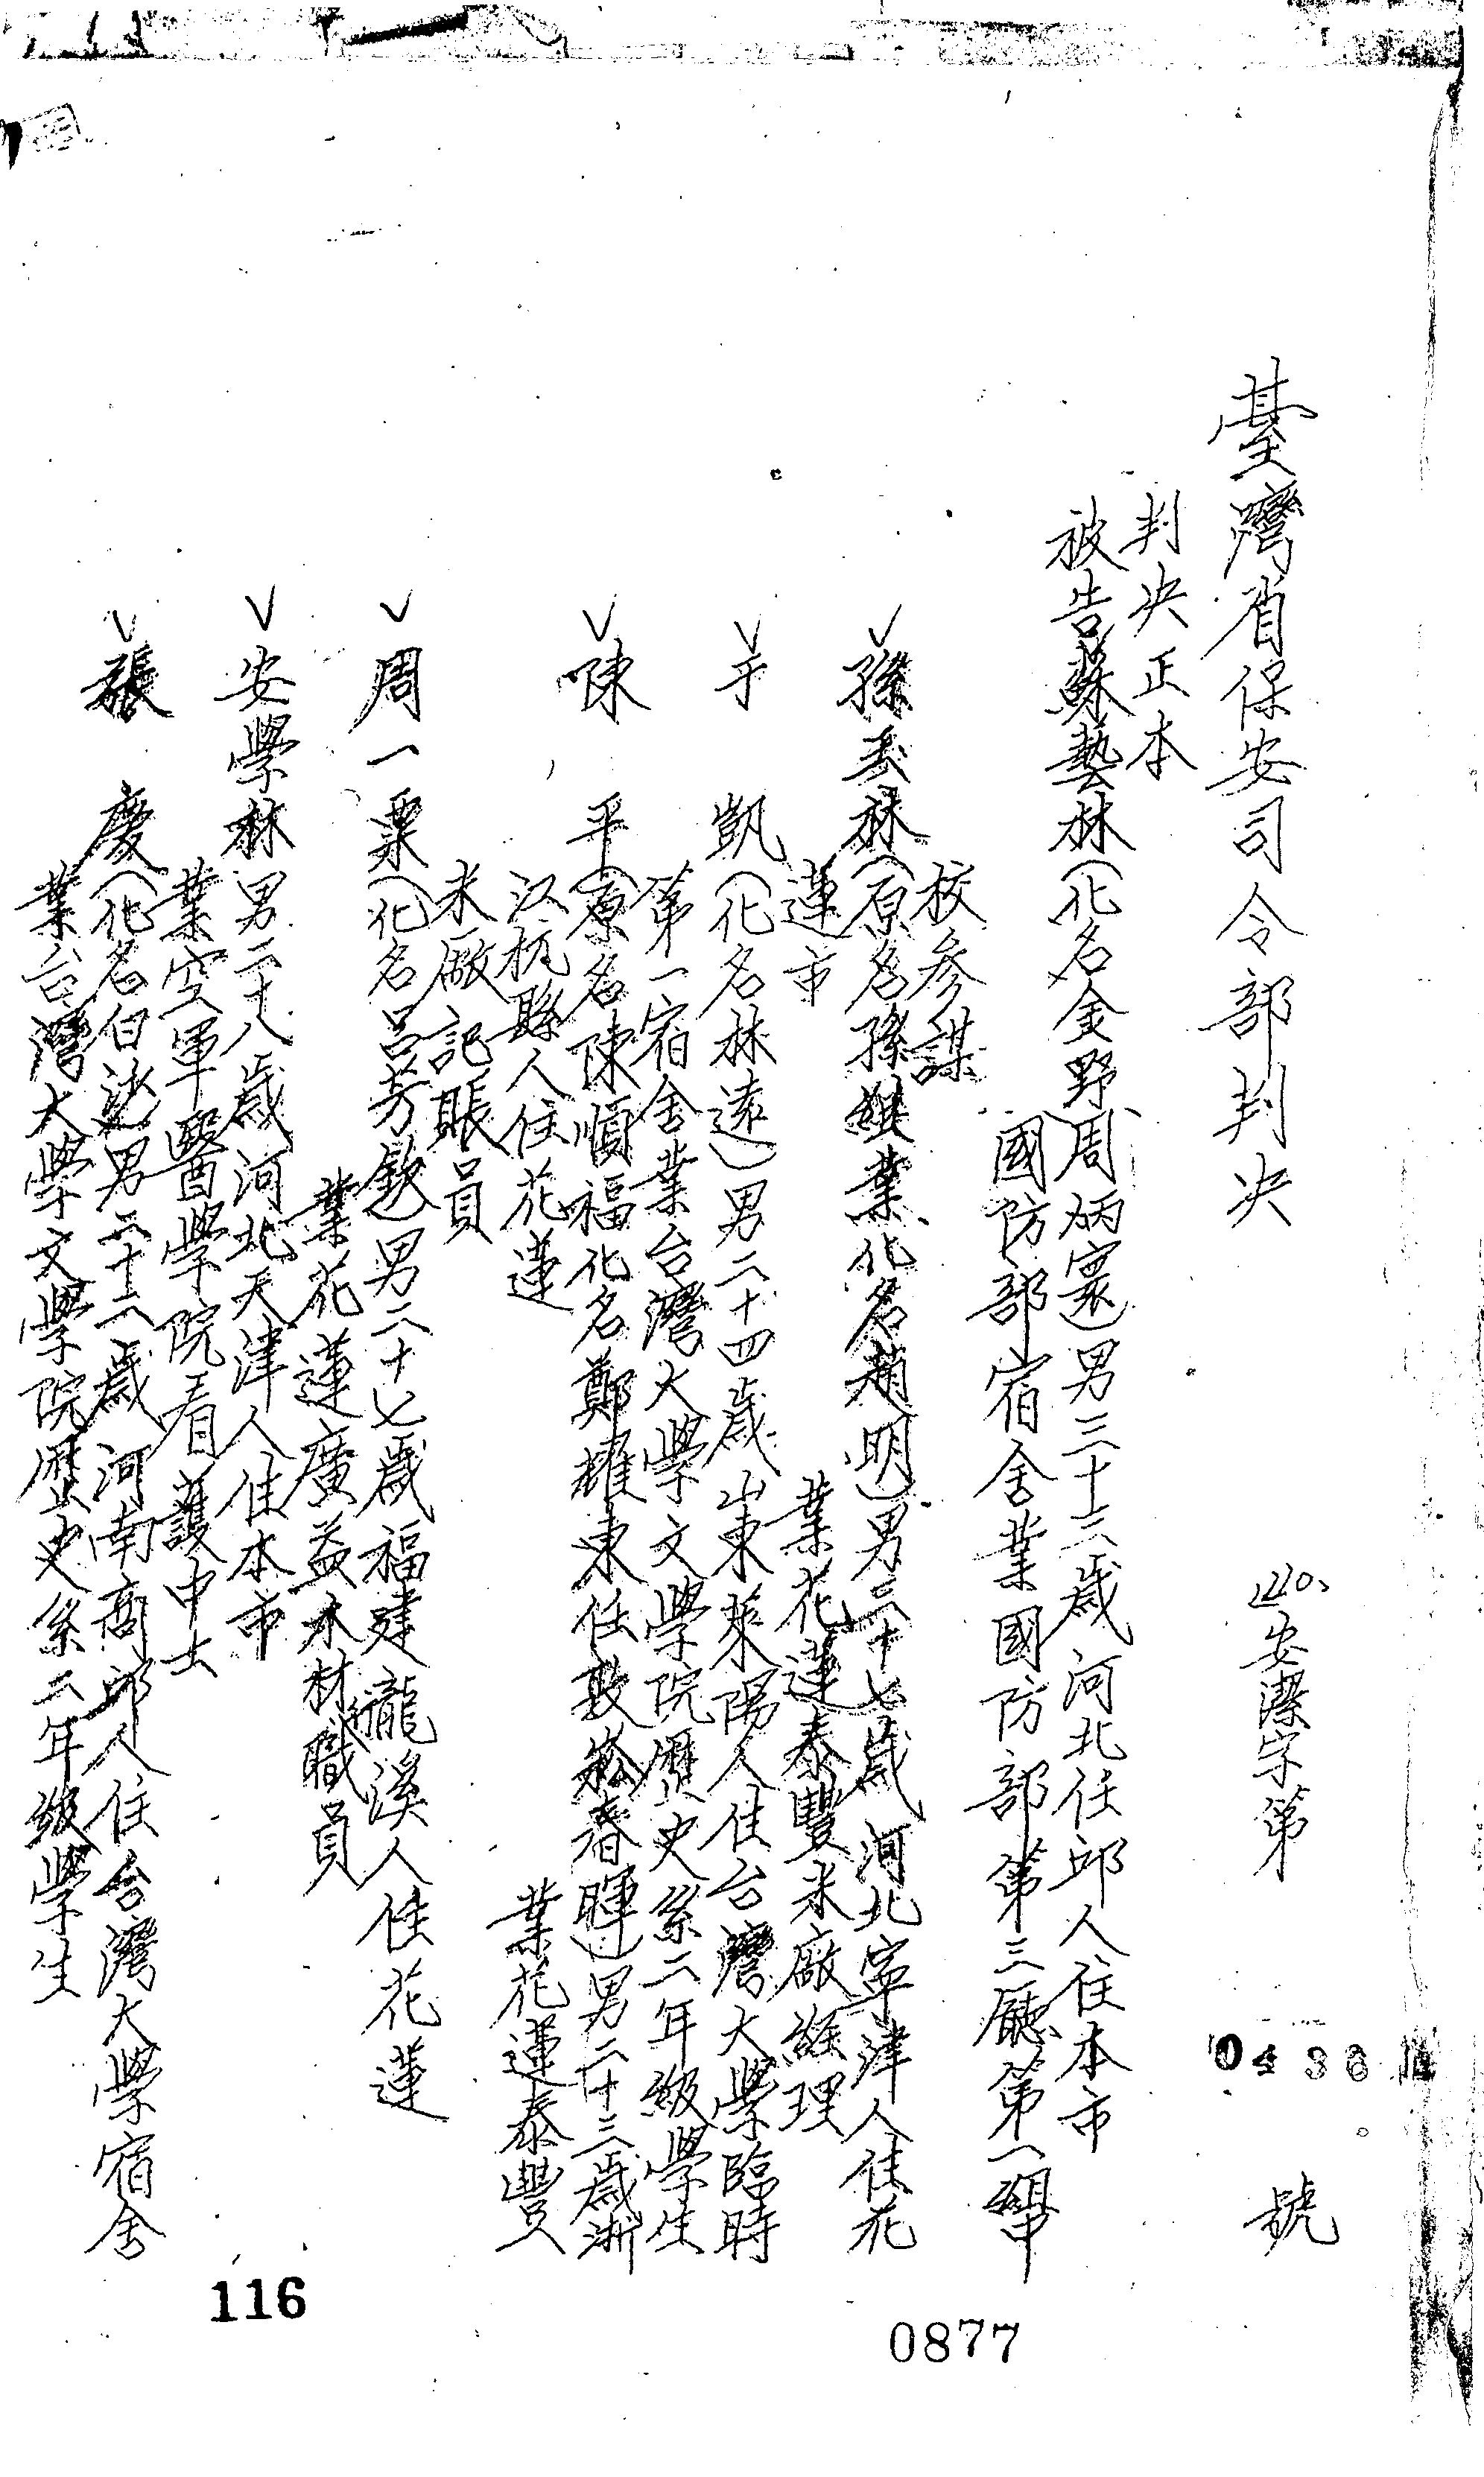 臺灣省保安司令部判決
安潔字第
號
判決正本
被告蘇藝林(化名金野周炳寰)男三十三歲河北任邱人住本市
國防部宿舍業國防部第三廳第一組中
校參謀
孫玉林(原名孫繼業化名趙明)男三十七歲河北寧津人住花
蓮市
業花蓮泰豐米廠經理
于 凱(化名林遠)男二十四歲山東萊陽人住台灣大學臨時
第一宿舍業台灣大學文學院歷史系二年級學生
陳 平(原名陳順福化名鄭耀東任敦崧春暉)男二十三歲浙
江杭縣人住花蓮
業花蓮泰豐
米廠記賬員
周一粟(化名呂芳欽)男二十七歲福建龍溪人住花蓮
業花蓮廣益木材職員
安學林男二十八歲河北天津人住本市
業空軍醫學院看護中士
張 慶(化名白沙)男二十二歲河南商邱人住台灣大學宿舍
業台灣大學文學院歷史系二年級學生
116
0877